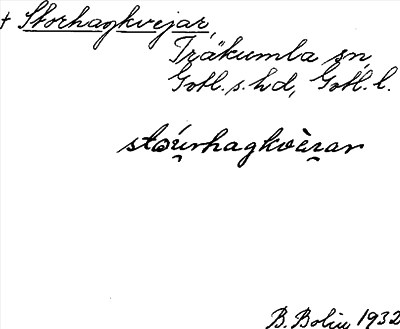 † Storhagkvejar,
Träkumla sn,
Gotl. s. hd, Gotl. l.
stoúrhagkvèrar
B. Bolin 1932